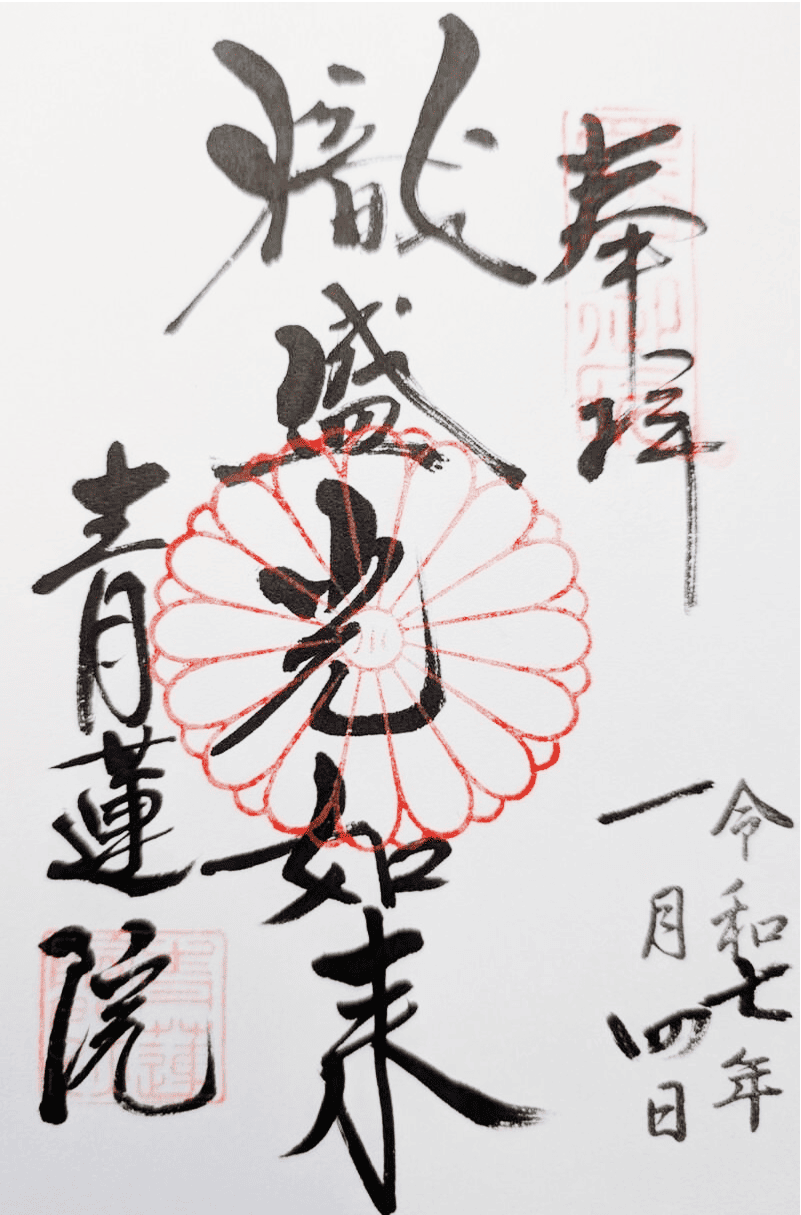 奉拝
令和七年
一月四日
熾盛光如来
青蓮院